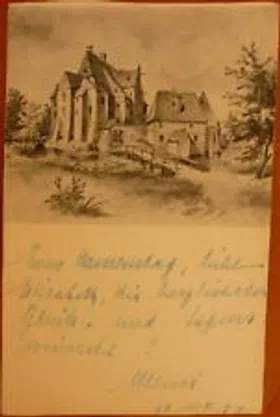 Zum Namenstag, liebe
Elisabeth, die herzlichsten
Glück- und Segens-
wünsche!